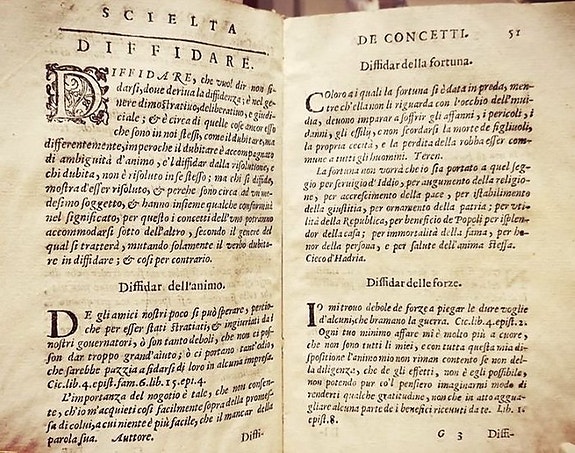 SCIELTA
DIFFIDARE.
DIFFIDARE, che vuol dir non fi
darsi, doue deriua la diffidenza; è nel ge
nere dimostratiuo, deliberatiuo, e giudi
ciale; & è circa di quelle cose ancor esso
che sono in noi stessi, come il dubitare, ma
differentemente, imperoche il dubitare è accompagnato
di ambiguità d'animo, e'l diffidar dalla risolutione, e
chi dubita, non è risoluto in se stesso; ma chi si diffida,
mostra d'esser risoluto, & perche sono circa ad vn me
desimo soggetto, & hanno insieme qualche conformità
nel significato, per questo i concetti dell'vno potranno
accommodarsi sotto dell'altro, secondo il genere del
qual si tratterà, mutando solamente il verbo dubita-
re in diffidare; & cosi per contrario.
Diffidar dell'animo.
DE gli amici nostri poco si può sperare, percio
che per esser stati stratiati, & ingiuriati da i
nostri gouernatori, ò son tanto deboli, che non ci pos
son dar troppo grand'aiuto; ò ci portano tant'odio,
che sarebbe pazzia a fidarsi di loro in alcuna impresa.
Cic. lib. 4. epist. fam. 6. lib. 15. epi. 4.
L'importanza del negotio è tale, che non consen-
te, ch'io m'acquieti cosi facilmente sopra della promes-
sa di colui, a cui niente è più facile, che il mancar della
parola sua. Auttore.
Diffi-
DE CONCETTI. 51
Diffidar della fortuna.
Coloro a i quali la fortuna si è data in preda, men-
tre ch'ella non li riguarda con l'occhio dell'inui-
dia, deuono imparar a soffrir gli affanni, i pericoli, i
danni, gli essilij, e non scordarsi la morte de figliuoli,
la propria cecità, e la perdita della robba esser com-
mune a tutti gli huomini. Teren.
La fortuna non vorrà che io sia portato a quel seg-
gio per seruigio d'Iddio, per augumento della religio-
ne, per accrescimento della pace, per istabilimento
della giustitia, per ornamento della patria, per vti-
lità della Republica, per beneficio de Popoli per isplen-
dor della casa; per immortalità della fama, per ho-
nor della persona, e per salute dell'anima stessa.
Cieco d'Hadria.
Diffidar delle forze.
IO mi trouo debole de forze a piegar le dure voglie
d'alcuni, che bramano la guerra. Cic. lib. 4. epist. 2.
Ogni tuo minimo affare mi è molto più a cuore,
che non sono tutti li miei, e con tutta questa mia di-
spositione l'animo mio non riman contento se non del-
la diligenza, che de gli effetti, non è egli possibile,
non potendo pur co'l pensiero imaginarmi modo di
renderti qualche gratitudine, non che in atto aggua-
gliare alcuna parte de i benefici riceuuti da te. Lib. 1.
epist. 8.
G 3 Diffi-